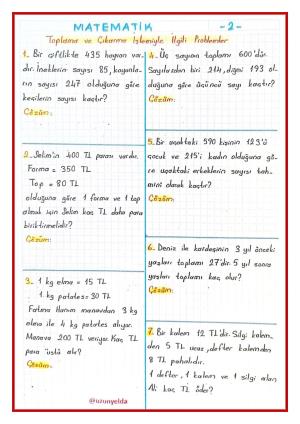 MATEMATİK -2-
Toplama ve Çıkarma İşlemiyle İlgili Problemler
1. Bir çiftlikte 435 hayvan var-
dır. İneklerin sayısı 85, koyunla-
rın sayısı 247 olduğuna göre
keçilerin sayısı kaçtır?
Çözüm:
2. Selim'in 400 TL parası vardır.
Forma = 350 TL
Top = 80 TL
olduğuna göre 1 forma ve 1 top
almak için Selim kaç TL daha para
biriktirmelidir?
Çözüm:
3. 1 kg elma = 15 TL
1 kg patates = 30 TL
Fatma Hanım manavdan 3 kg
elma ile 4 kg patates alıyor.
Manava 200 TL veriyor. Kaç TL
para üstü alır?
Çözüm:
4. Üç sayının toplamı 600'dür.
Sayılardan biri 214, diğeri 193 ol-
duğuna göre üçüncü sayı kaçtır?
Çözüm:
5. Bir uçaktaki 590 kişinin 123'ü
çocuk ve 215'i kadın olduğuna gö-
re uçaktaki erkeklerin sayısı tah-
mini olarak kaçtır?
Çözüm:
6. Deniz ile kardeşinin 3 yıl önceki
yaşları toplamı 27'dir. 5 yıl sonra
yaşları toplamı kaç olur?
Çözüm:
7. Bir kalem 12 TL'dir. Silgi kalem-
den 5 TL ucuz, defter kalemden
8 TL pahalıdır.
1 defter, 1 kalem ve 1 silgi alan
Ali kaç TL öder?
@uzunyelda